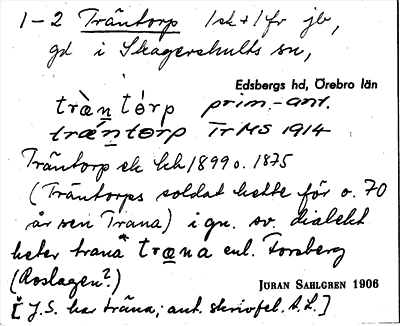 1-2 Träntorp 1sk+1fr jb,
gd i Skagershults sn,
Edsbergs hd, Örebro län
træ̀ntórp prim.-anv.
trǽntorp IrMS 1914
Träntorp ek kk 1899 o. 1875
(Träntorps soldat hette för o. 70
år sen Trana) i gn. sv. dialekt
heter trana* træna enl. Forsberg
(Roslagen?)
JÖRAN SAHLGREN 1906
[* J.S. har träna; ant. skrivfel. A.L.]